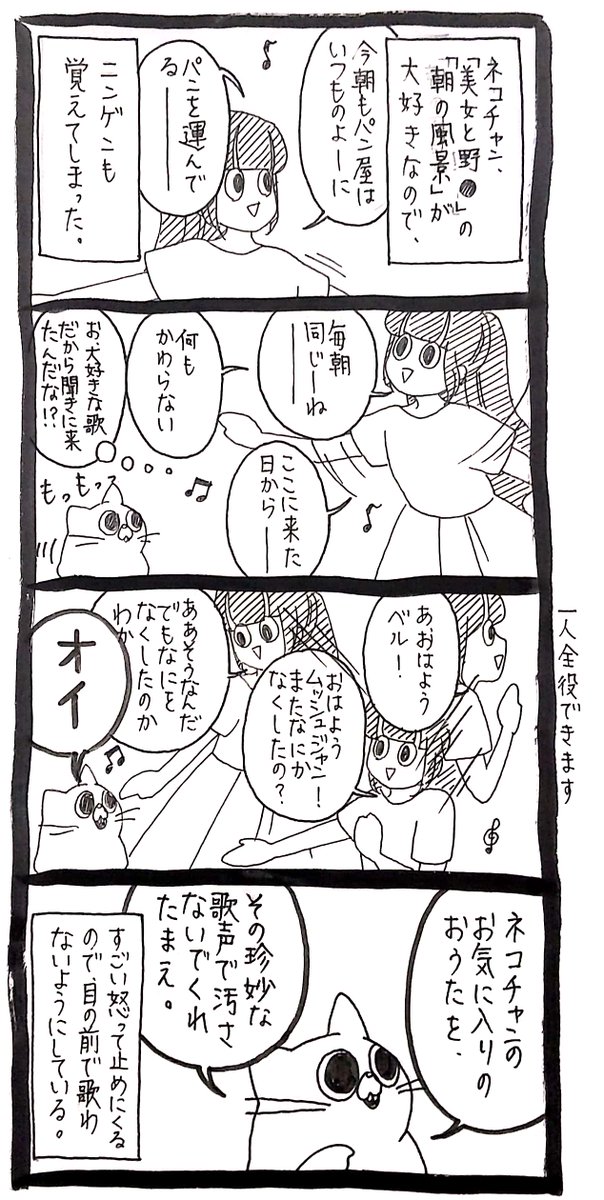 ネコチャン、
「美女と野●」の
「朝の風景」が
大好きなので、
今朝もパン屋は
いつものよーに
パンを運んで
る――
ニンゲンも
覚えてしまった。
毎朝
同じーね
――
何も
かわらない
お、大好きな歌
だから聞きに来
たんだな!?
もっもっ
ここに来た
日から――
一人全役できます
あ、おはよう
ベル!
おはよう
ムッシュジャン!
またなにか
なくしたの?
ああそうなんだ
でもなにを
なくしたのか
わか
オイ
ネコチャンの
お気に入りの
おうたを、
その珍妙な
歌声で汚さ
ないでくれ
たまえ。
すごい怒って止めにくる
ので、目の前で歌わ
ないようにしている。